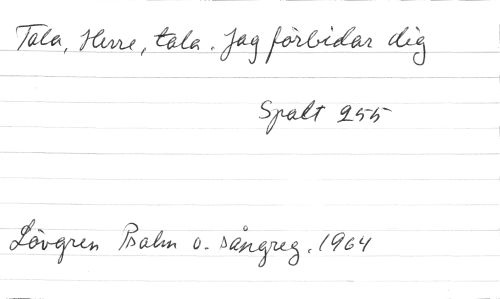 Tala, Herre, tala. Jag förbidar dig
Spalt 255
Lövgren Psalm o. sångreg. 1964